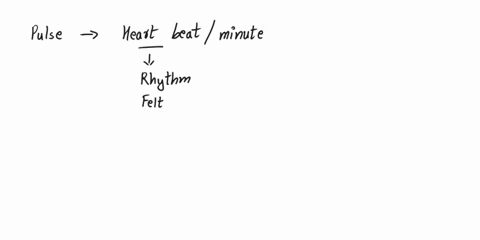 Pulse → Heart beat / minute
↓
Rhythm
Felt